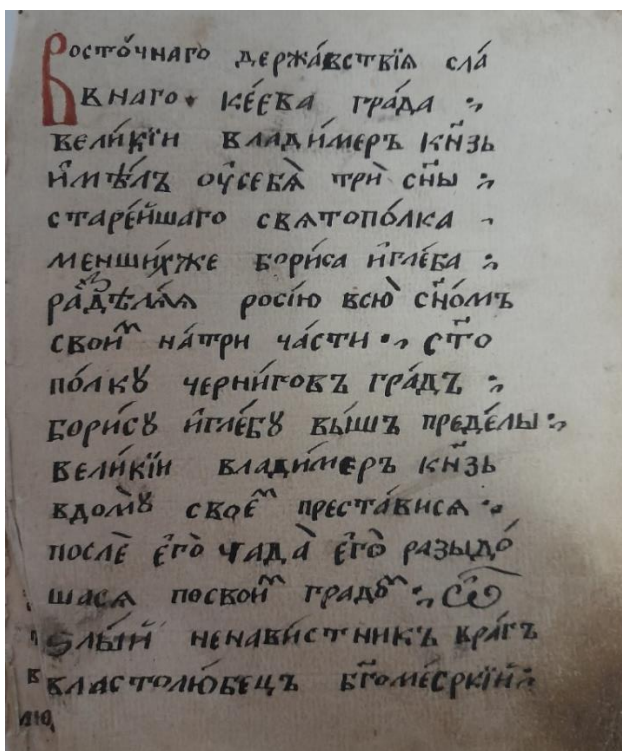 Восто́чнаго держа́вствїѧ сла́
внаго ке́ева гра́да
вели́кїи влади́меръ кн҃зь
и҆мѣ́лъ оу҆себѧ̀ трѝ сн҃ы
старе́йшаго свѧтопо́лка
менши́хже бори́са и҆глѣ́ба
разⷣѣлѧ́ѧ росі́ю всю̀ сн҃о́мъ
своиⷨ на́три ча́сти ст҃о
по́лкꙋ черни́говъ гра́дъ
бори́сꙋ и҆глѣ́бꙋ вы́шъ преде́лы
вели́кїи влади́меръ кн҃зь
вдомꙋ̀ своеⷨ преста́висѧ
послѐ є҆гѡ̀ ча́да є҆гѡ̀ разыдо́
шасѧ посвоиⷨ градоⷨ ѿ
ѕлы́й ненави́стникъ вра́гъ
властолю́бецъ бг҃оме́рскїй